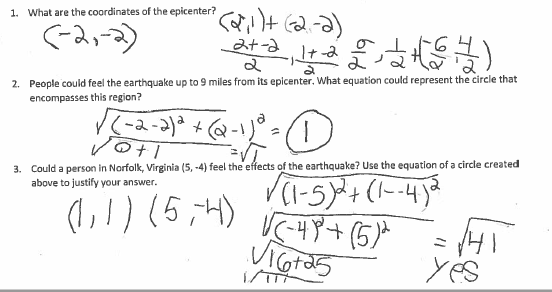 1. What are the coordinates of the epicenter?
(2,1)+(2,-2)
(-2,-2)
2+-2/2, 1+-2/2 0/2, 1/2
2. People could feel the earthquake up to 9 miles from its epicenter. What equation could represent the circle that
encompasses this region?
√(-2-2)²+(2-1)² = 1
√0+1 = √1
3. Could a person in Norfolk, Virginia (5, -4) feel the effects of the earthquake? Use the equation of a circle created
above to justify your answer.
√(1-5)²+(1--4)²
(1,1) (5,-4)
√(-4)²+(5)² = √41
√16+25 yes